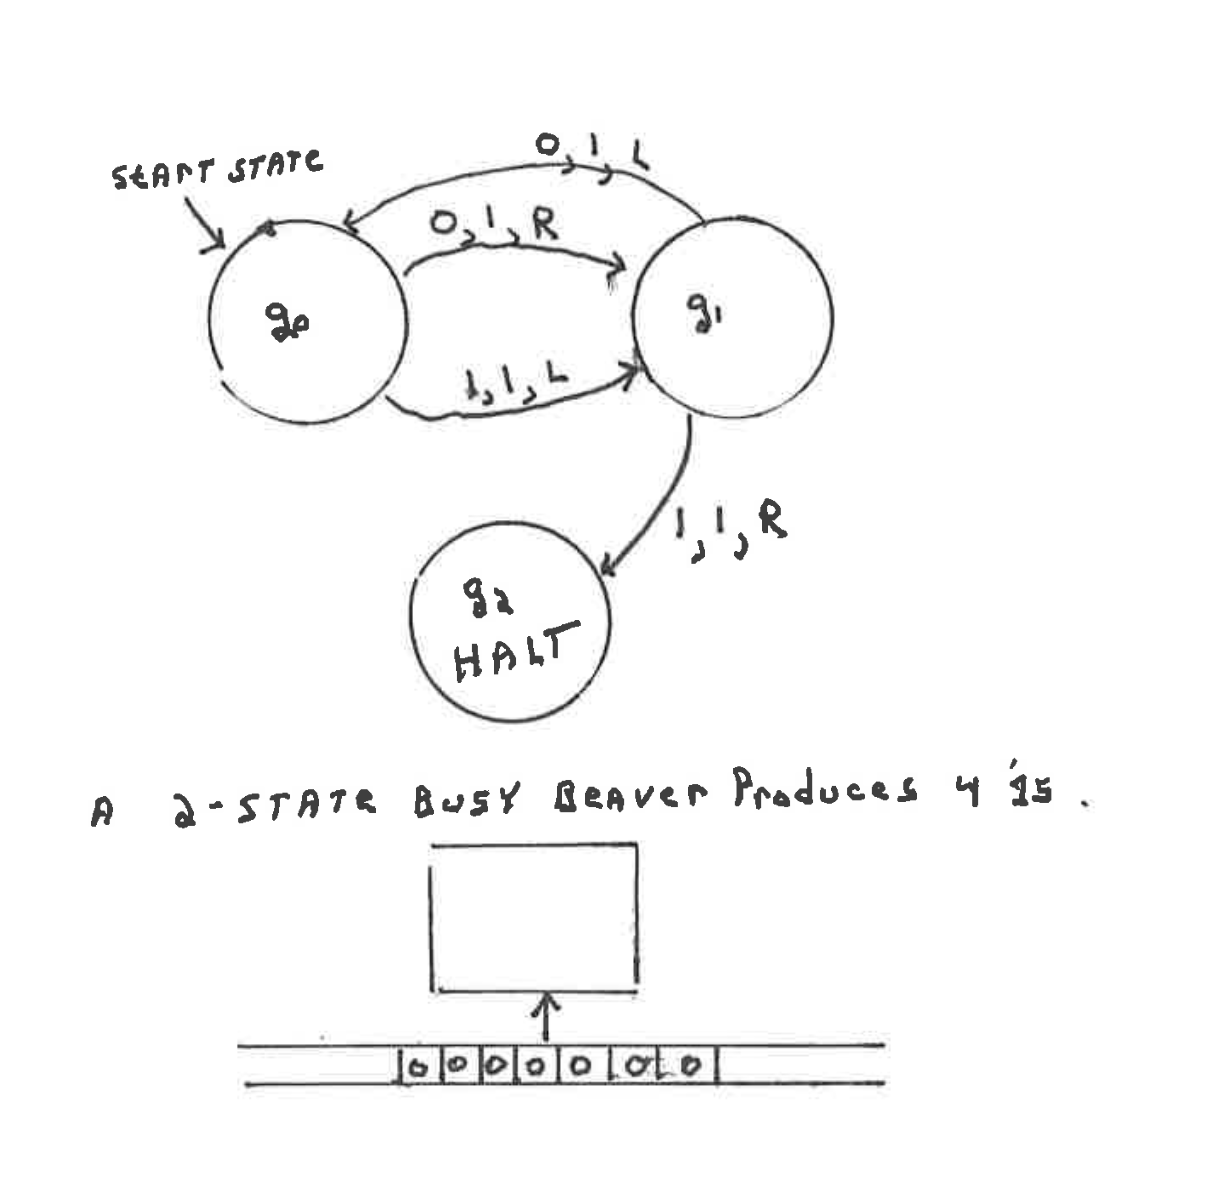 START STATE
0, 1, L
0, 1, R
q0
q1
1, 1, L
1, 1, R
q2
HALT
A 2-STATE BUSY BEAVER PRODUCES 4 '1s.
0 0 0 0 0 0 0